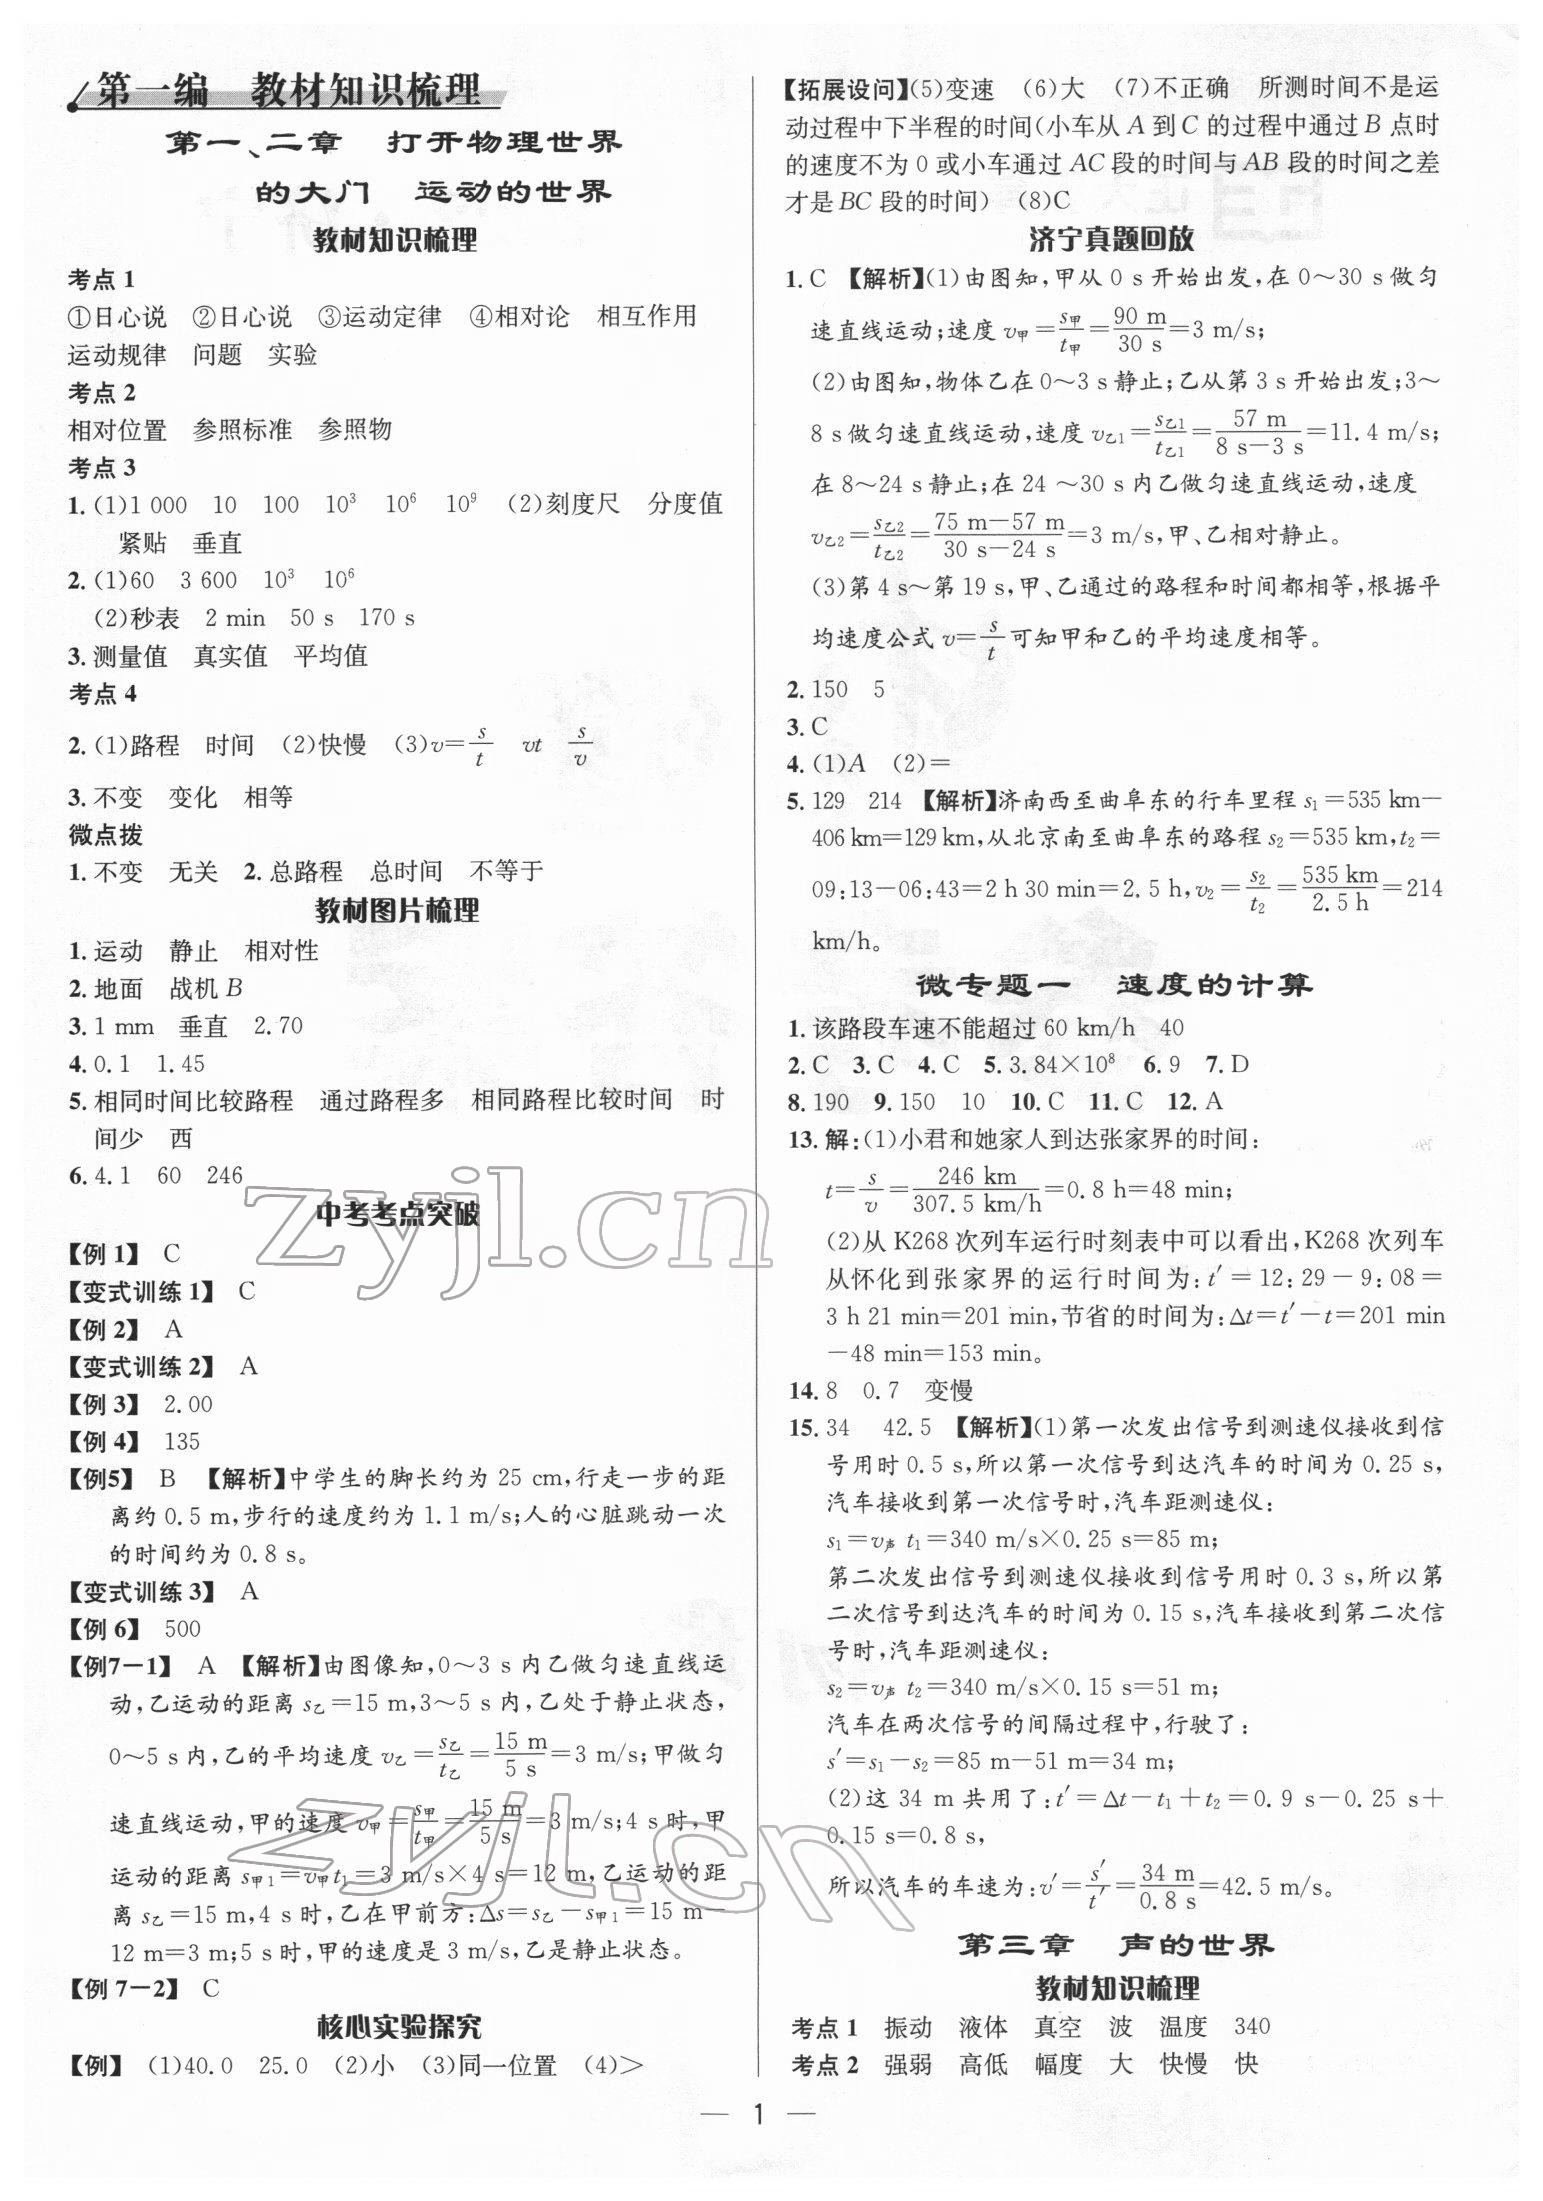 第一编 教材知识梳理
第一、二章 打开物理世界
的大门 运动的世界
教材知识梳理
考点 1
①日心说 ②日心说 ③运动定律 ④相对论 相互作用
运动规律 问题 实验
考点 2
相对位置 参照标准 参照物
考点 3
1.(1)1 000 10 100 10³ 10⁶ 10⁹ (2)刻度尺 分度值
紧贴 垂直
2.(1)60 3 600 10³ 10⁶
(2)秒表 2 min 50 s 170 s
3.测量值 真实值 平均值
考点 4
2.(1)路程 时间 (2)快慢 (3)v=s/t vt s/v
3.不变 变化 相等
微点拨
1.不变 无关 2.总路程 总时间 不等于
教材图片梳理
1.运动 静止 相对性
2.地面 战机B
3.1 mm 垂直 2.70
4.0.1 1.45
5.相同时间比较路程 通过路程多 相同路程比较时间 时
间少 西
6.4.1 60 246
中考考点突破
【例 1】 C
【变式训练 1】 C
【例 2】 A
【变式训练 2】 A
【例 3】 2.00
【例 4】 135
【例5】 B 【解析】中学生的脚长约为 25 cm,行走一步的距
离约 0.5 m,步行的速度约为 1.1 m/s;人的心脏跳动一次
的时间约为 0.8 s。
【变式训练 3】 A
【例 6】 500
【例7－1】 A 【解析】由图像知,0～3 s 内乙做匀速直线运
动,乙运动的距离 s乙=15 m,3～5 s 内,乙处于静止状态,
0～5 s 内,乙的平均速度 v乙=s乙/t乙=15 m/5 s=3 m/s;甲做匀
速直线运动,甲的速度 v甲=s甲/t甲=15 m/5 s=3 m/s;4 s 时,甲
运动的距离 s甲1=v甲t1=3 m/s×4 s=12 m,乙运动的距
离 s乙=15 m,4 s 时,乙在甲前方:Δs=s乙－s甲1=15 m－
12 m=3 m;5 s 时,甲的速度是 3 m/s,乙是静止状态。
【例 7－2】 C
核心实验探究
【例】 (1)40.0 25.0 (2)小 (3)同一位置 (4)>
【拓展设问】(5)变速 (6)大 (7)不正确 所测时间不是运
动过程中下半程的时间(小车从 A 到 C 的过程中通过 B 点时
的速度不为 0 或小车通过 AC 段的时间与 AB 段的时间之差
才是 BC 段的时间) (8)C
济宁真题回放
1.C 【解析】(1)由图知,甲从 0 s 开始出发,在 0～30 s 做匀
速直线运动;速度 v甲=s甲/t甲=90 m/30 s=3 m/s;
(2)由图知,物体乙在 0～3 s 静止;乙从第 3 s 开始出发;3～
8 s 做匀速直线运动,速度 v乙1=s乙1/t乙1=57 m/(8 s－3 s)=11.4 m/s;
在 8～24 s 静止;在 24 ～30 s 内乙做匀速直线运动,速度
v乙2=s乙2/t乙2=(75 m－57 m)/(30 s－24 s)=3 m/s,甲、乙相对静止。
(3)第 4 s～第 19 s,甲、乙通过的路程和时间都相等,根据平
均速度公式 v=s/t 可知甲和乙的平均速度相等。
2.150 5
3.C
4.(1)A (2)=
5.129 214 【解析】济南西至曲阜东的行车里程 s1=535 km－
406 km=129 km,从北京南至曲阜东的路程 s2=535 km,t2=
09:13－06:43=2 h 30 min=2.5 h,v2=s2/t2=535 km/2.5 h=214
km/h。
微专题一 速度的计算
1.该路段车速不能超过 60 km/h 40
2.C 3.C 4.C 5.3.84×10⁸ 6.9 7.D
8.190 9.150 10 10.C 11.C 12.A
13.解:(1)小君和她家人到达张家界的时间:
t=s/v=246 km/307.5 km/h=0.8 h=48 min;
(2)从 K268 次列车运行时刻表中可以看出,K268 次列车
从怀化到张家界的运行时间为:t′=12:29－9:08=
3 h 21 min=201 min,节省的时间为:Δt=t′－t=201 min
－48 min=153 min。
14.8 0.7 变慢
15.34 42.5 【解析】(1)第一次发出信号到测速仪接收到信
号用时 0.5 s,所以第一次信号到达汽车的时间为 0.25 s,
汽车接收到第一次信号时,汽车距测速仪:
s1=v声 t1=340 m/s×0.25 s=85 m;
第二次发出信号到测速仪接收到信号用时 0.3 s,所以第
二次信号到达汽车的时间为 0.15 s,汽车接收到第二次信
号时,汽车距测速仪:
s2=v声 t2=340 m/s×0.15 s=51 m;
汽车在两次信号的间隔过程中,行驶了:
s′=s1－s2=85 m－51 m=34 m;
(2)这 34 m 共用了:t′=Δt－t1+t2=0.9 s－0.25 s+
0.15 s=0.8 s,
所以汽车的车速为:v′=s′/t′=34 m/0.8 s=42.5 m/s。
第三章 声的世界
教材知识梳理
考点 1 振动 液体 真空 波 温度 340
考点 2 强弱 高低 幅度 大 快慢 快
— 1 —
zyjl.cn
zyjl.cn